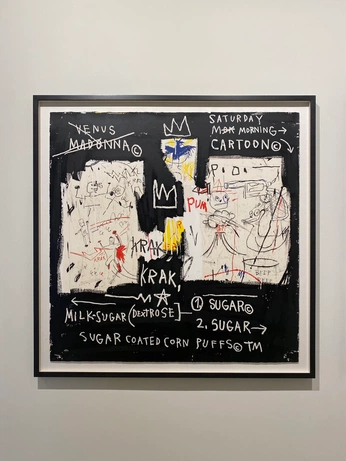 VENUS
MADONNA©
SATURDAY
MORNING→
CARTOON©
PUM
KRAK
KRAK,
MILK-SUGAR (DEXTROSE]
① SUGAR©
2. SUGAR→
SUGAR COATED CORN PUFFS© TM